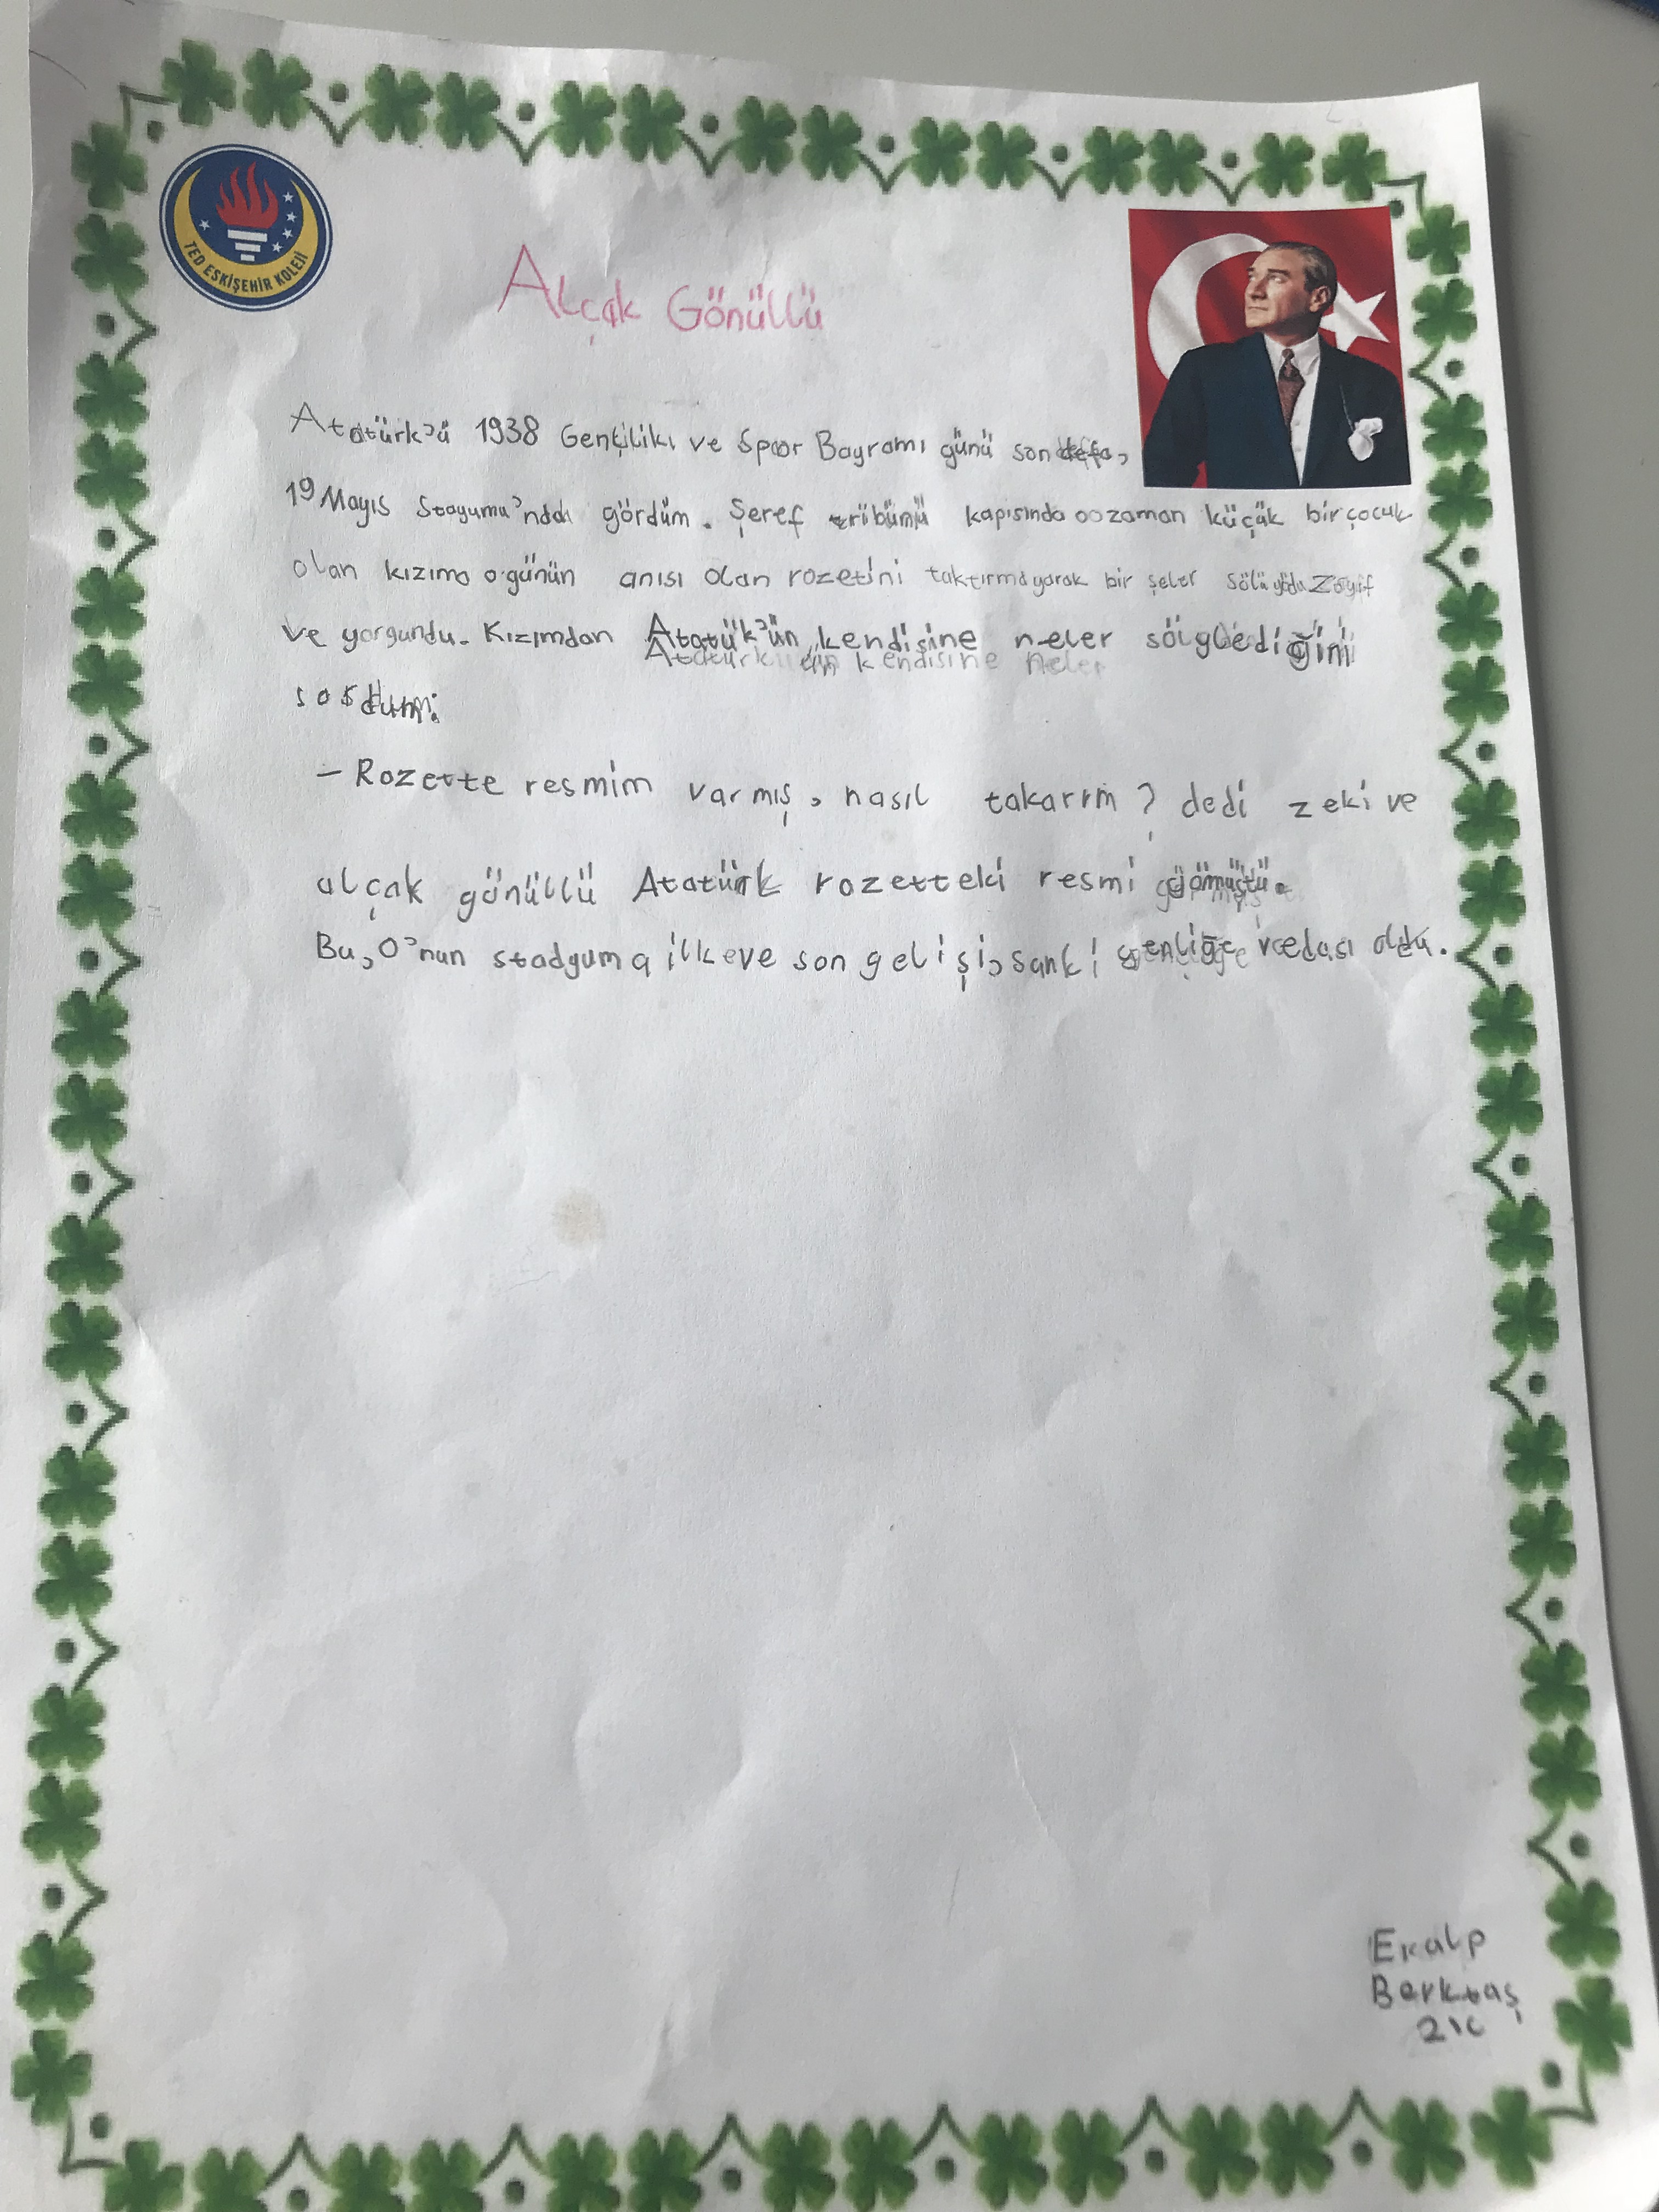 TED ESKİŞEHİR KOLEJİ
Alçak Gönüllü
Atatürk'ü 1938 Gençiliki ve Spoor Bayramı günü son defa,
19 Mayıs Stayumu'nda gördüm. Şeref tribünü kapısında oozaman küçük bir çocuk
olan kızıma o günün anısı olan rozetini taktırmayarak bir şeler Zayıf
ve yorgundu. Kızımdan Atatük'ün kendisine neler sölylediğini
Atatürk kendisine neler
sordum:
- Rozette resmim varmış, nasıl takarım? dedi zeki ve
alçak gönüllü Atatürk rozetteki resmi
Bu, O'nun stadyuma ilkeve son gelişi, sanki vedası oldu.
Eralp
Berktaş